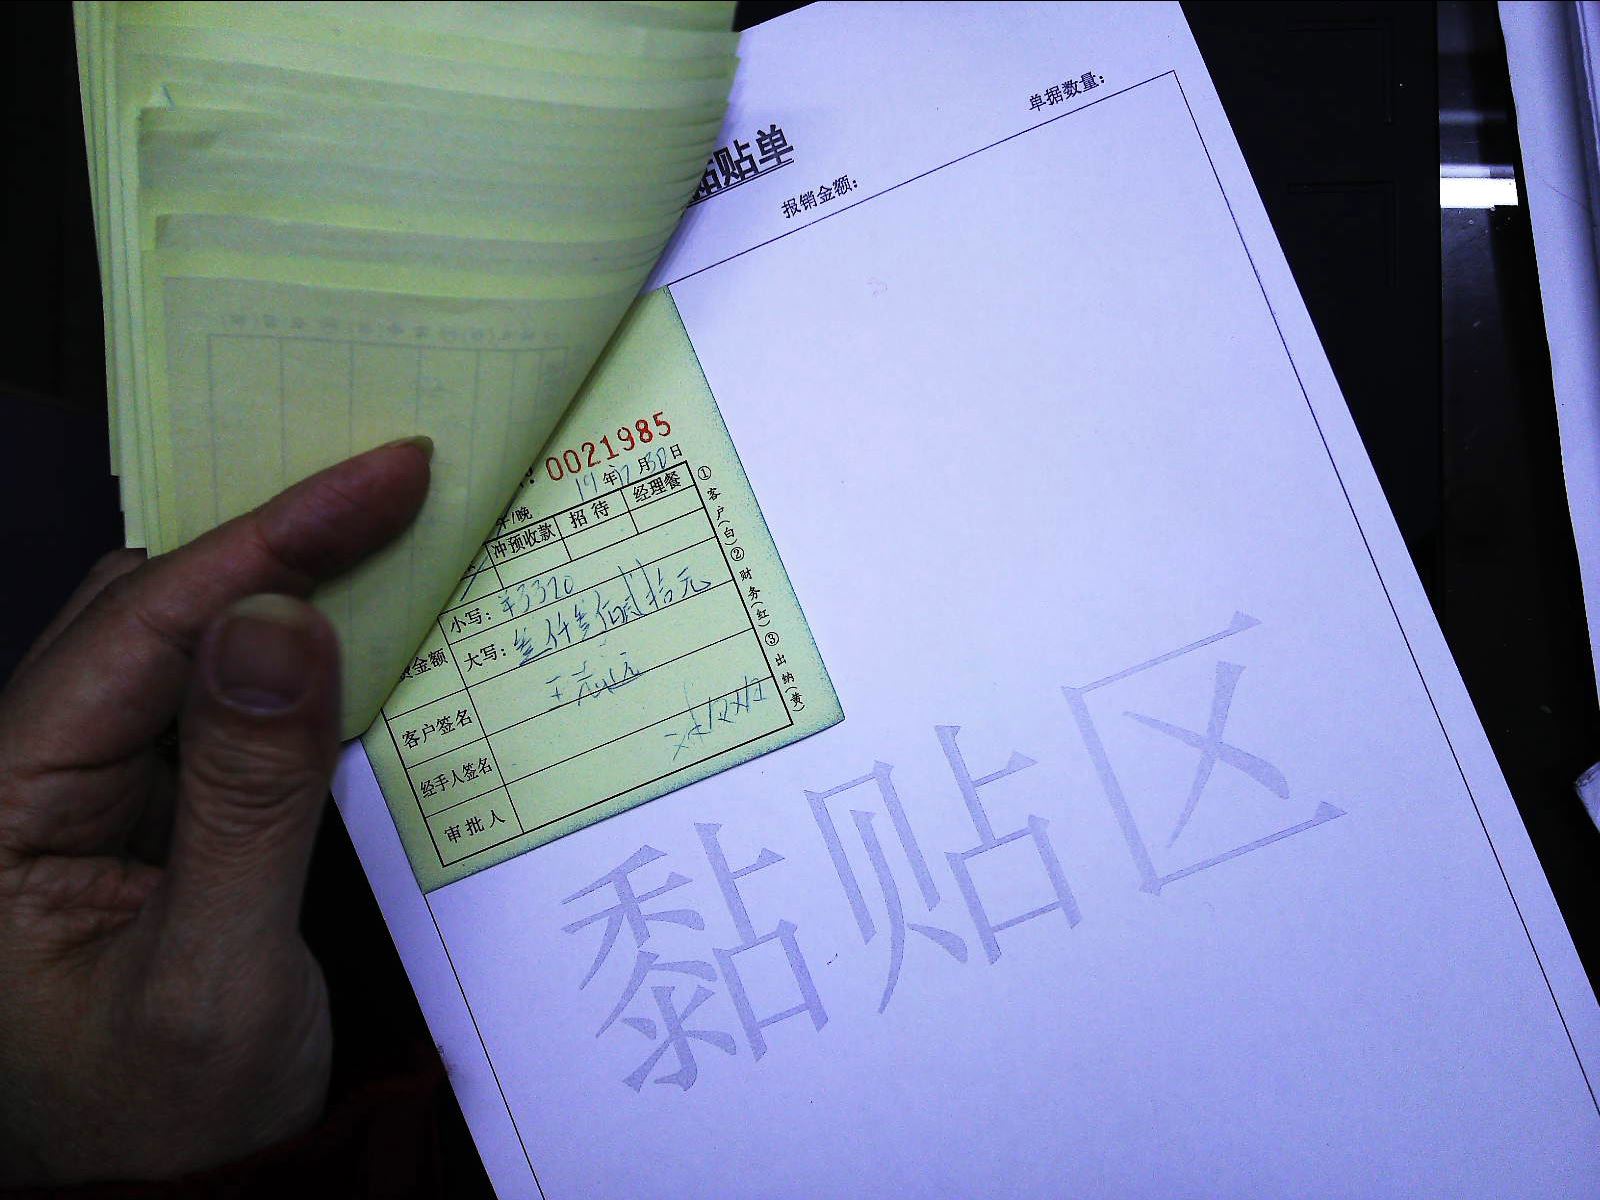 粘贴单
单据数量：
报销金额：
0021985
19年12月30日
午/晚
冲预收款 招待 经理餐
小写：¥3320
金额 大写：叁仟叁佰贰拾元
客户签名
经手人签名
审批人
①客户(白)②财务(红)③出纳(黄)
黏贴区